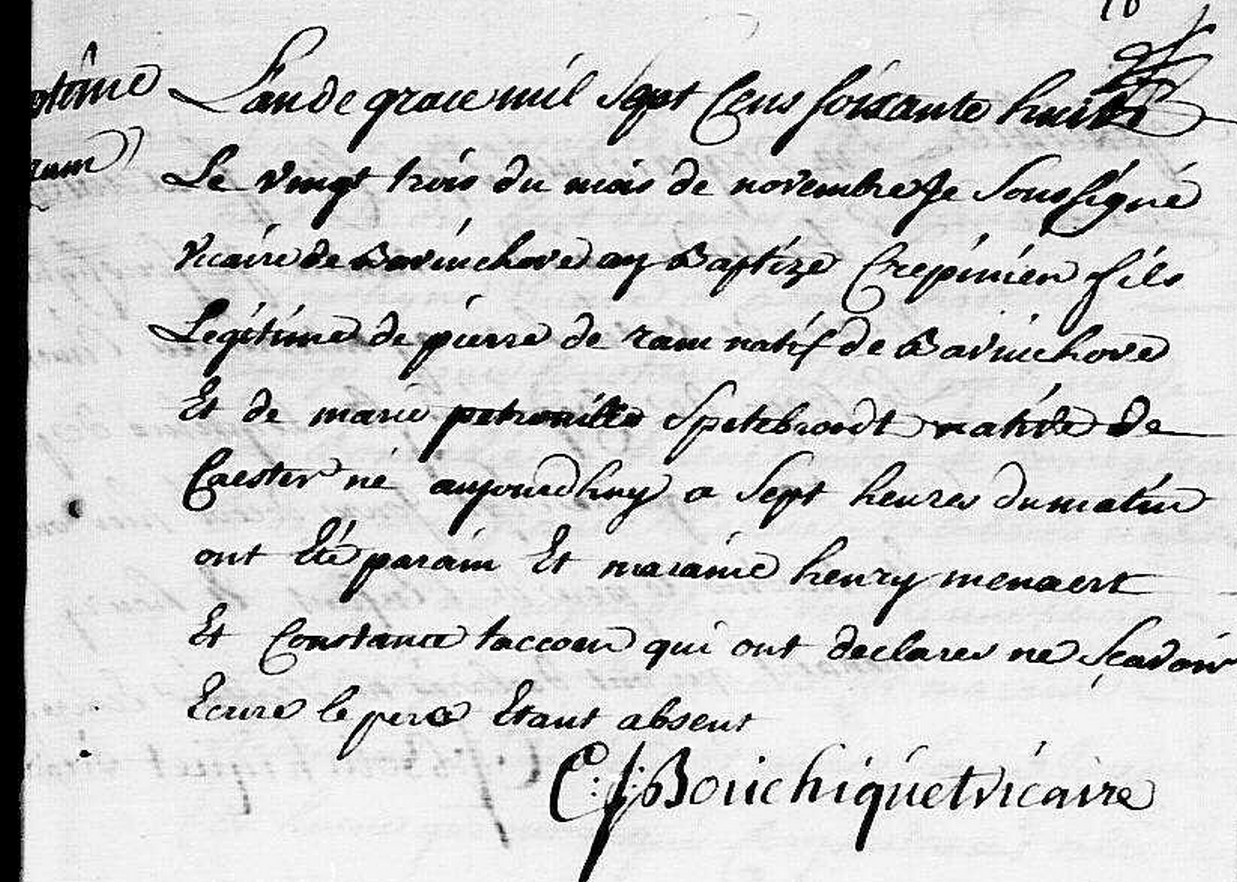 L'an de grace mil sept Cens soixante huit
Le vingt trois du mois de novembre Je soussigné
vicaire de Bavinchove ay Baptize Crepinien fils
Legitime de pierre de ram natif de Bavinchove
Et de marie petronille Spetebroodt native de
Caester né aujourdhuy a sept heures du matin
ont Eté parain Et maraine henry menaert
Et Constance taccoen qui ont declares ne sçavoir
Ecrire le pere Etant absent
C: J: Bouchiquet vicaire